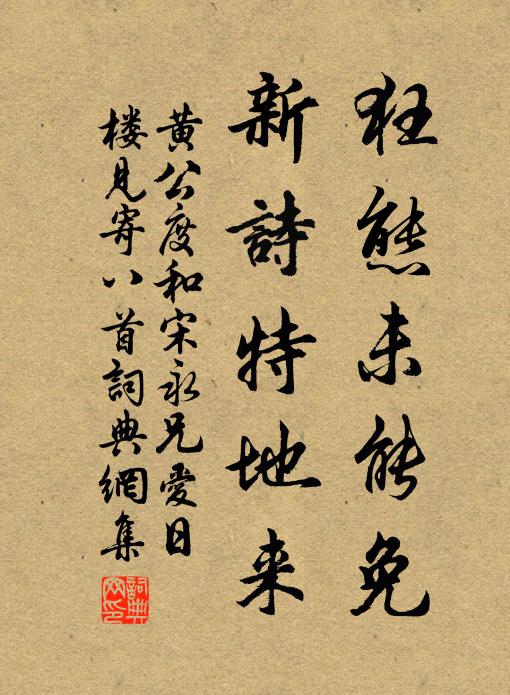 狂態未能免
新詩特地来
黄公度和宋永兄愛日
楼見寄八首詞典網集
詞典网印